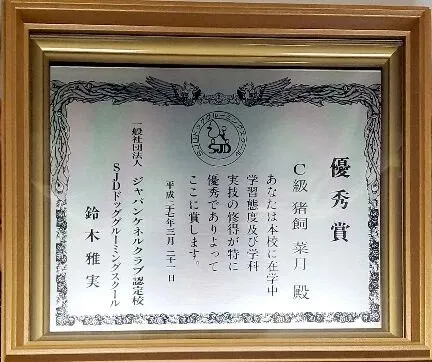 優秀賞
C級 猪飼 菜月 殿
あなたは本校に在学中
学習態度及び学科
実技の修得が特に
優秀でありよって
ここに賞します。
平成二七年三月二十一日
一般社団法人 ジャパンケネルクラブ認定校
SJDドッググルーミングスクール
鈴木雅実
SJD